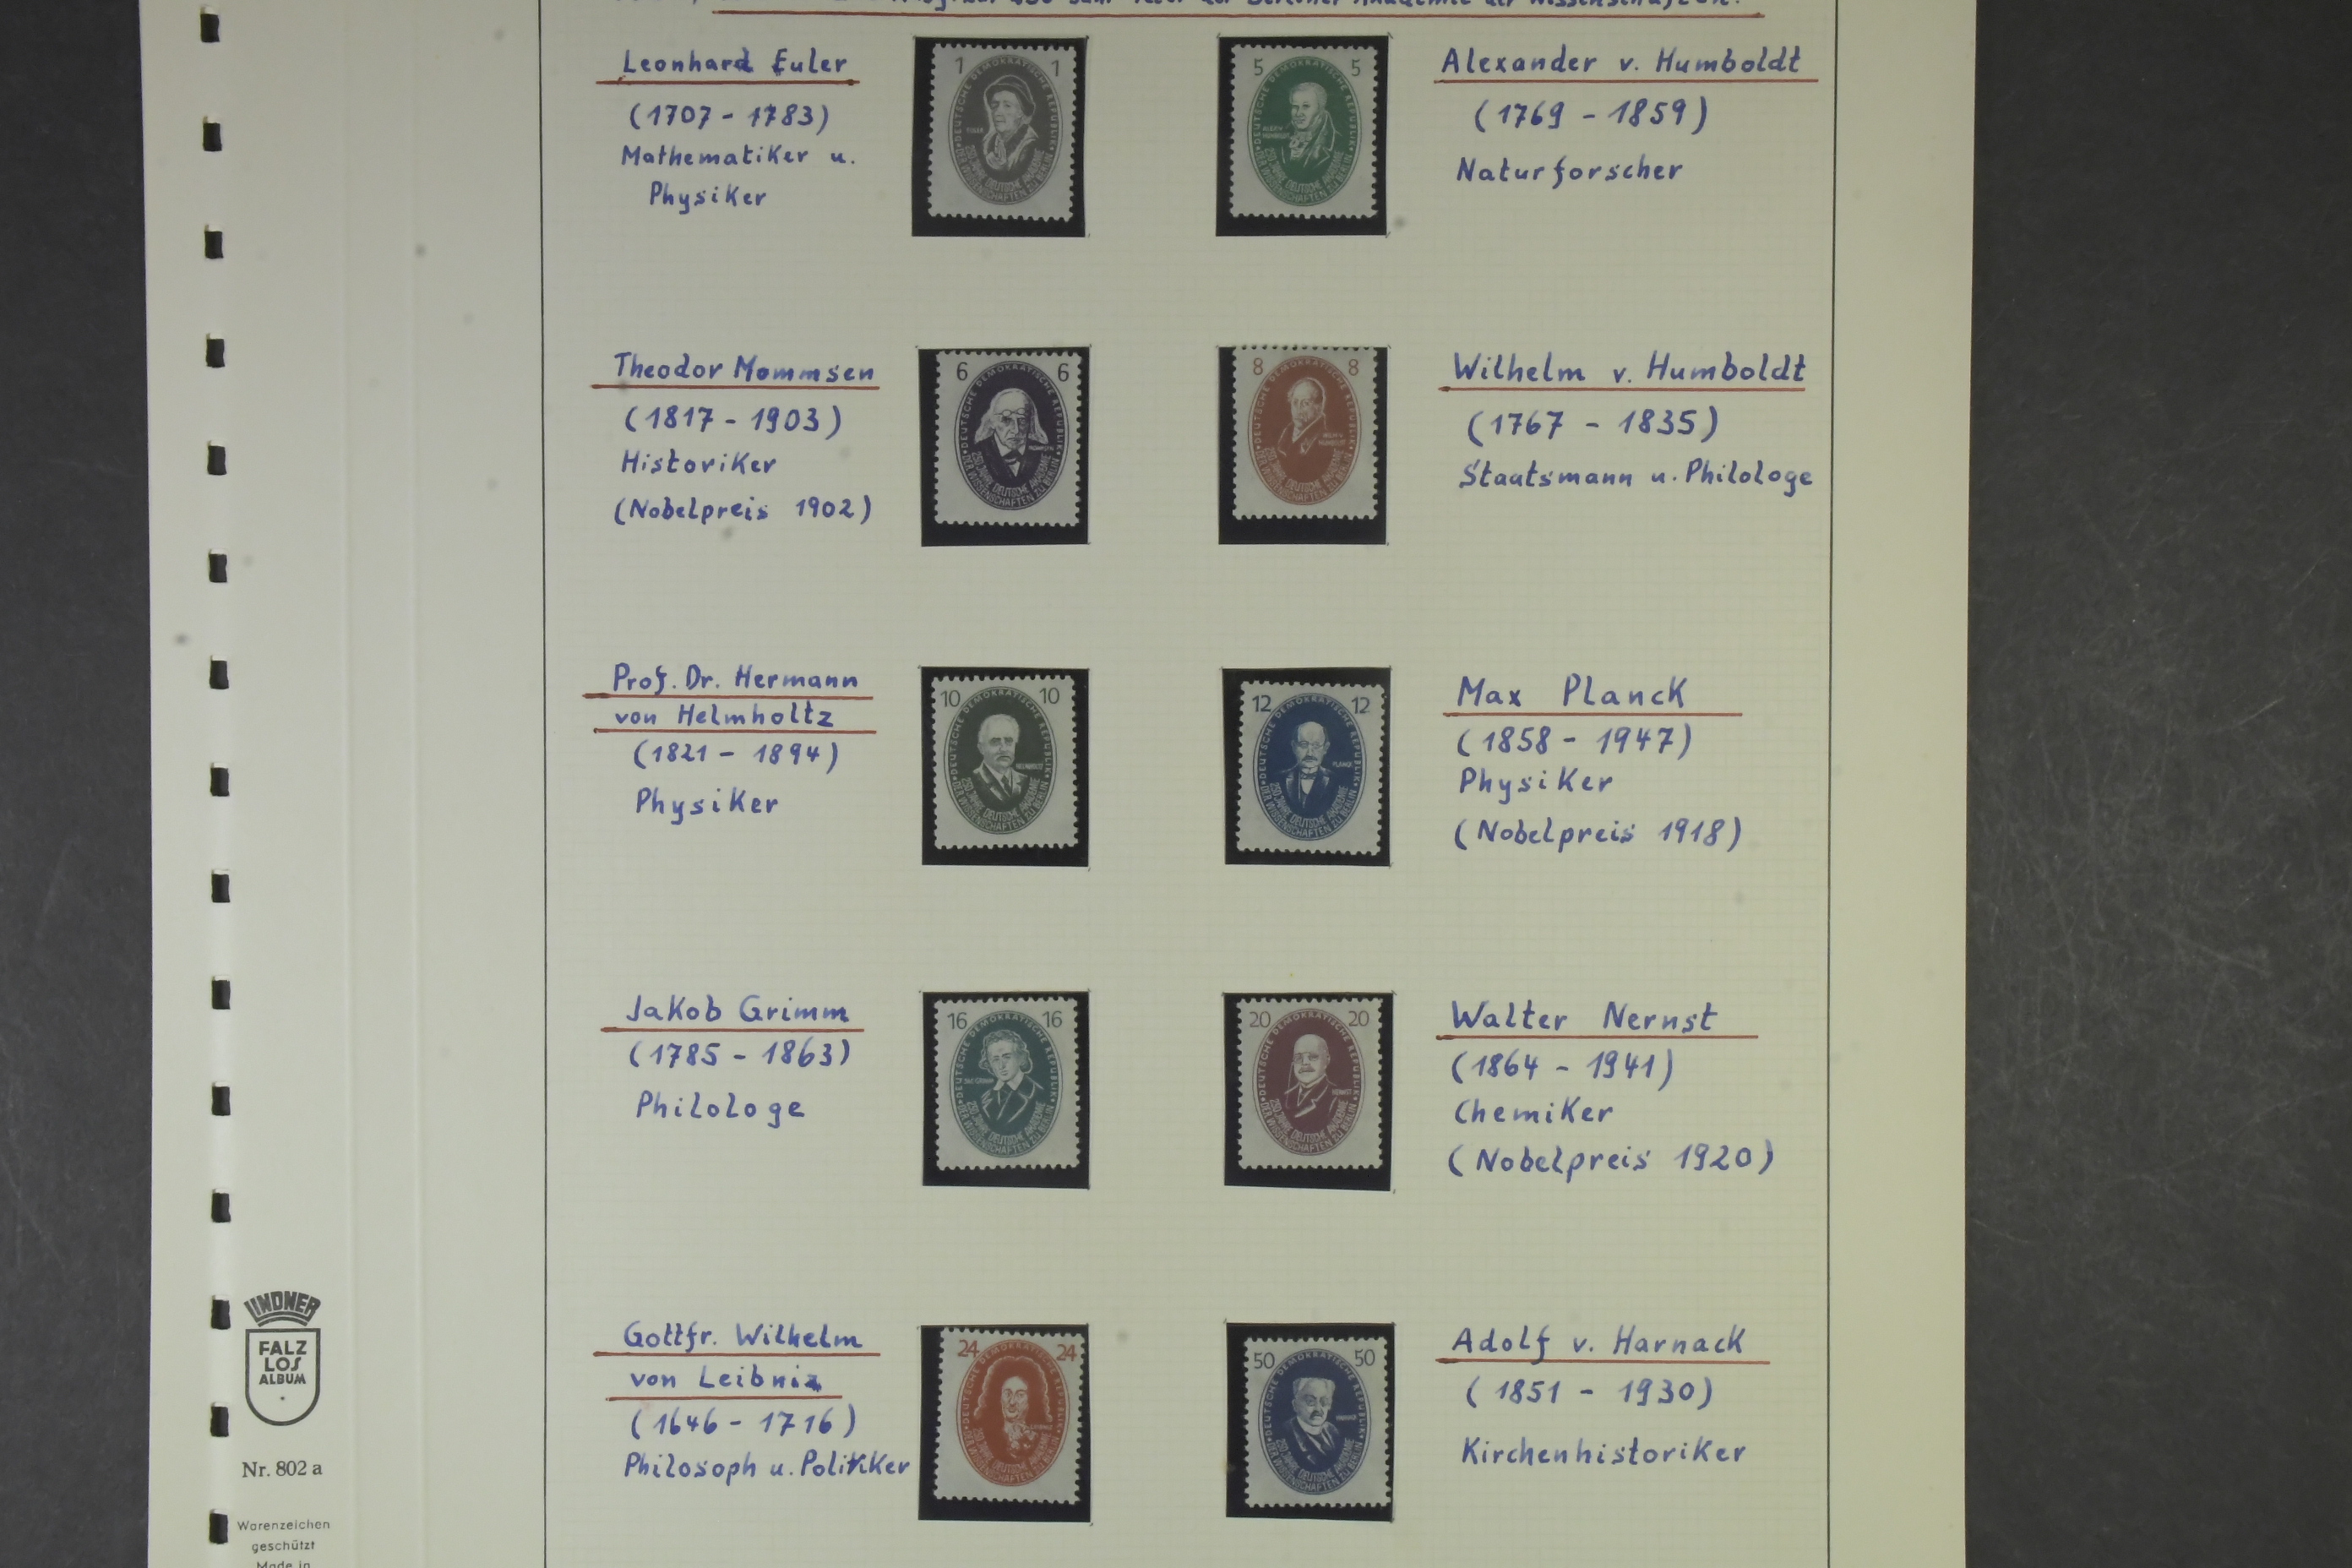 250 Jahr der Berliner Akademie der Wissenschaften.
Leonhard Euler
(1707 - 1783)
Mathematiker u.
Physiker
1 1
DEUTSCHE DEMOKRATISCHE REPUBLIK
EULER
250 JAHRE DEUTSCHE AKADEMIE
DER WISSENSCHAFTEN ZU BERLIN
5 5
DEUTSCHE DEMOKRATISCHE REPUBLIK
HUMBOLDT
250 JAHRE DEUTSCHE AKADEMIE
DER WISSENSCHAFTEN ZU BERLIN
Alexander v. Humboldt
(1769 - 1859)
Naturforscher
Theodor Mommsen
(1817 - 1903)
Historiker
(Nobelpreis 1902)
6 6
DEUTSCHE DEMOKRATISCHE REPUBLIK
250 JAHRE DEUTSCHE AKADEMIE
DER WISSENSCHAFTEN ZU BERLIN
8 8
DEUTSCHE DEMOKRATISCHE REPUBLIK
HUMBOLDT
250 JAHRE DEUTSCHE AKADEMIE
DER WISSENSCHAFTEN ZU BERLIN
Wilhelm v. Humboldt
(1767 - 1835)
Staatsmann u. Philologe
Prof. Dr. Hermann
von Helmholtz
(1821 - 1894)
Physiker
10 10
DEUTSCHE DEMOKRATISCHE REPUBLIK
HELMHOLTZ
250 JAHRE DEUTSCHE AKADEMIE
DER WISSENSCHAFTEN ZU BERLIN
12 12
DEUTSCHE DEMOKRATISCHE REPUBLIK
PLANCK
250 JAHRE DEUTSCHE AKADEMIE
DER WISSENSCHAFTEN ZU BERLIN
Max Planck
(1858 - 1947)
Physiker
(Nobelpreis 1918)
Jakob Grimm
(1785 - 1863)
Philologe
16 16
DEUTSCHE DEMOKRATISCHE REPUBLIK
JAC GRIMM
250 JAHRE DEUTSCHE AKADEMIE
DER WISSENSCHAFTEN ZU BERLIN
20 20
DEUTSCHE DEMOKRATISCHE REPUBLIK
NERNST
250 JAHRE DEUTSCHE AKADEMIE
DER WISSENSCHAFTEN ZU BERLIN
Walter Nernst
(1864 - 1941)
Chemiker
(Nobelpreis 1920)
Gottfr. Wilhelm
von Leibniz
(1646 - 1716)
Philosoph u. Politiker
24 24
DEUTSCHE DEMOKRATISCHE REPUBLIK
250 JAHRE DEUTSCHE AKADEMIE
DER WISSENSCHAFTEN ZU BERLIN
50 50
DEUTSCHE DEMOKRATISCHE REPUBLIK
HARNACK
250 JAHRE DEUTSCHE AKADEMIE
DER WISSENSCHAFTEN ZU BERLIN
Adolf v. Harnack
(1851 - 1930)
Kirchenhistoriker
LINDNER
FALZ
LOS
ALBUM
Nr. 802 a
Warenzeichen
geschützt
Made in